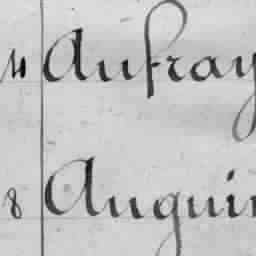 4 Aufray
8 Anguin